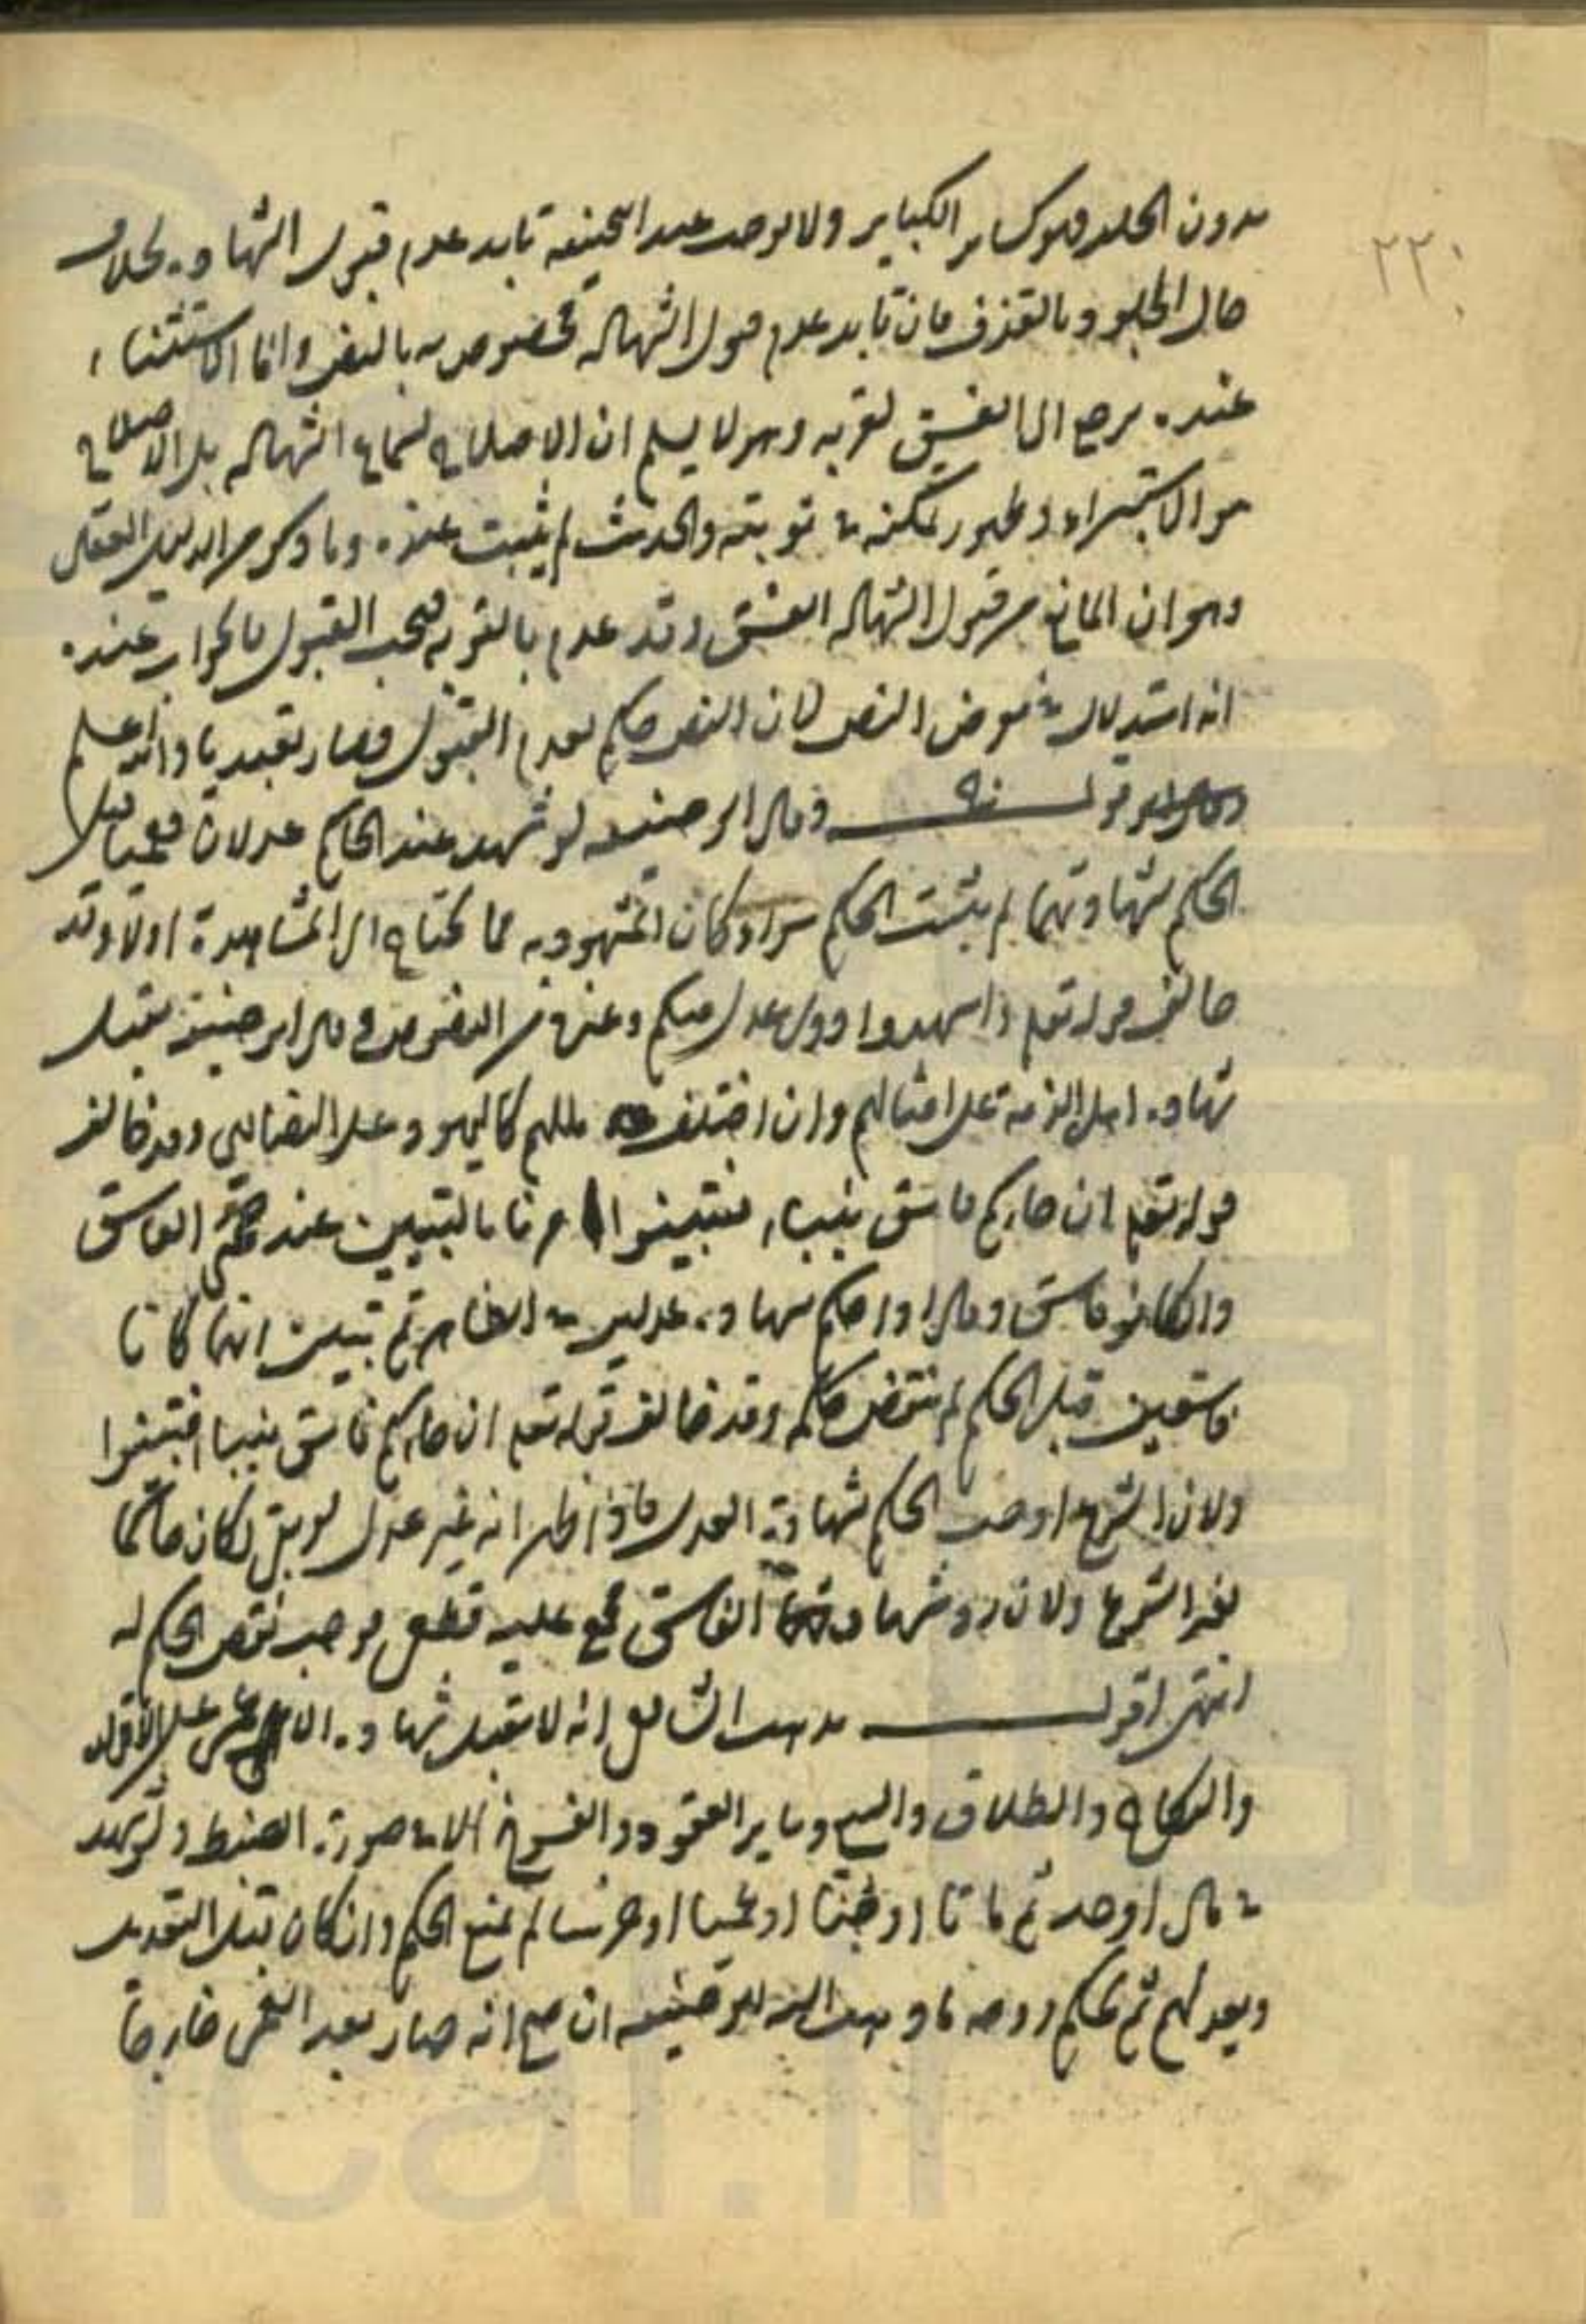 ٢٢٠
بدون الجلد فهو كساير الكباير ولا يوجب عند ابي حنيفة تابيد عدم قبول الشهادة بخلاف
حال الجلد وبالقذف فان تابيد عدم قبول الشهاده مخصوص به بالنص واما الاستثناء
عنده يرجع الى الفسق لقربه وهو لا يسلم ان الاصلاح لسماع الشهاده بل الاصلاح
هو الاستبراء وظهور تمكنه في توبته والحديث لم يثبت عنده وما ذكر من الدليل العقلي
وهو ان المانع من قبول الشهاده الفسق وقد عدم بالتوبه فيجب القبول فالجواب عنده
انه استدلال في معرض النص لان النص حكم بعدم القبول فصار تعبديا والله اعلم
قال ابو حنيفه لو شهد عند الحاكم عدلان فعميا قبل
الحكم بشهادتهما لم يثبت الحكم سواء كان المشهود به مما يحتاج الى المشاهدة او لا وقد
خالف قوله تعلم واشهدوا ذوى عدل منكم وغيره من النصوص وقال ابو حنيفة يقبل
شهاده اهل الذمة على امثالهم وان اختلف مللهم كاليهود على النصارى وقد خالف
قوله تعلم ان جاءكم فاسق بنبباء فتبينوا امرنا بالتبيين عند مجئ الفاسق
والكافر فاسق وقال اذا حكم بشهاده عدلين في الظاهر ثم تبين انهما كانا
فاسقين قبل الحكم لم ينتقض حكمه وقد خالف قوله تعلم ان جاءكم فاسق بنبا فتبينوا
ولان الشرع اوجب الحكم بشهادة العدل فاذا ظهر انه غير عدل لو بقى لكان حاكما
بغير الشرع ولان رد شهادة الفاسق مجمع عليه قطعى يوجب نقض الحكم له
انتهى اقول مذهب الشافعي انه لا تقبل شهاده الاعمى على الاقوال
والنكاح والطلاق والبيع وساير العقود والفسوخ الا في صورة الضبط ولو شهد
في مال او حد ثم ماتا او جنا او عميا او خرسا لم يمنع الحكم وان كان قبل التعديل
ويعدلهم ثم يحكم ووجه ما ذهب اليه ابو حنيفه ان صح انه صار بعد العمى خارجا